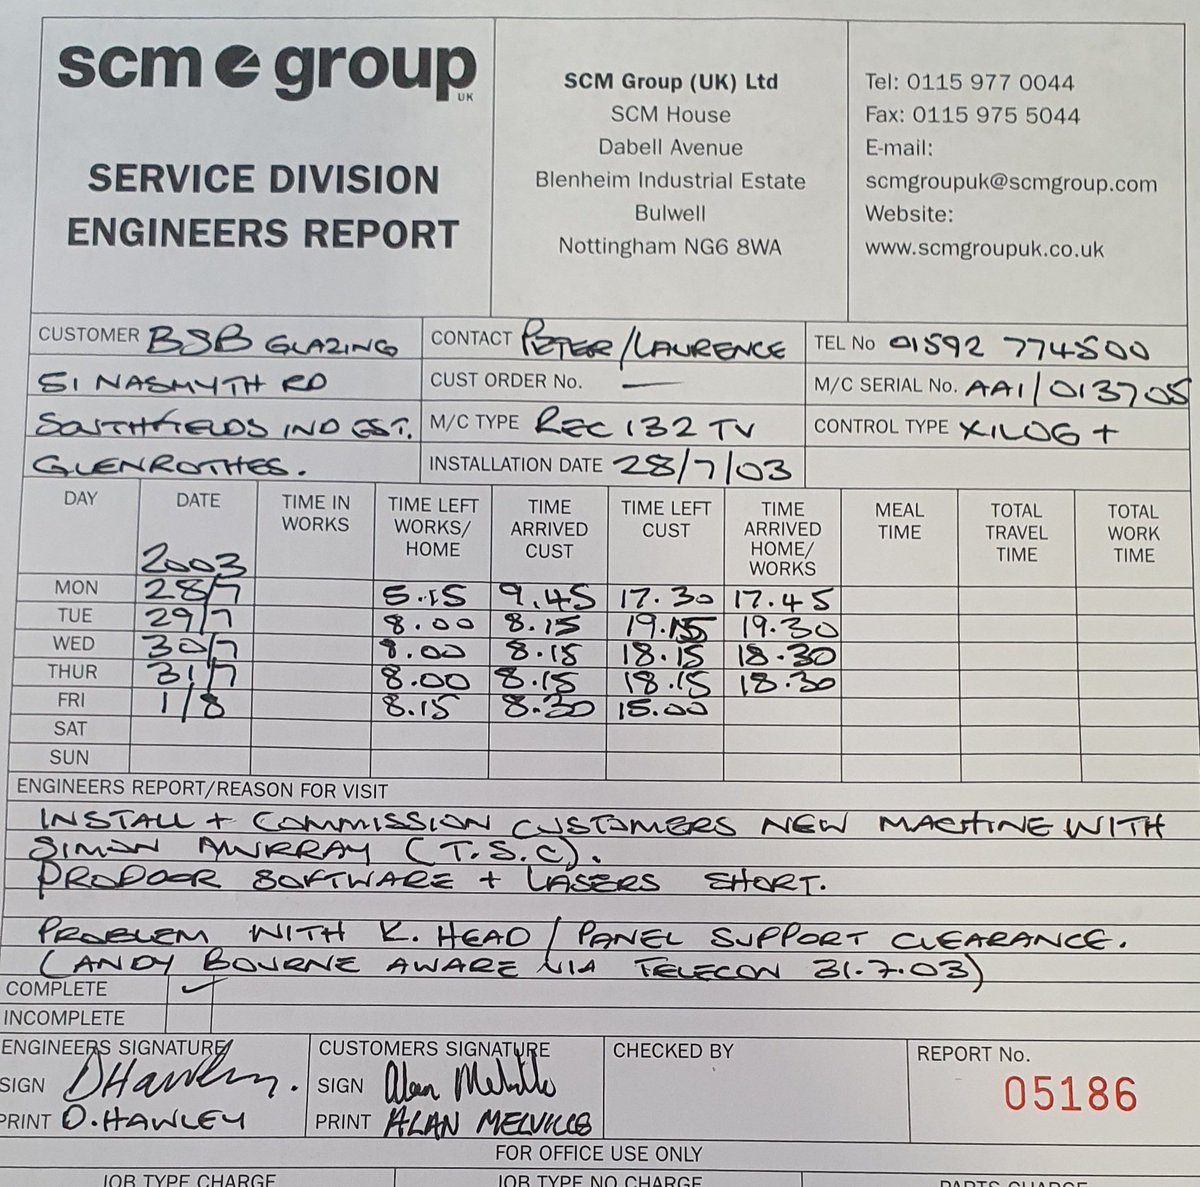 scm group UK
SERVICE DIVISION
ENGINEERS REPORT
SCM Group (UK) Ltd
SCM House
Dabell Avenue
Blenheim Industrial Estate
Bulwell
Nottingham NG6 8WA
Tel: 0115 977 0044
Fax: 0115 975 5044
E-mail:
scmgroupuk@scmgroup.com
Website:
www.scmgroupuk.co.uk
CUSTOMER BSB GLAZING CONTACT PETER/LAURENCE TEL No 01592 774500
51 NASMYTH RD CUST ORDER No. — M/C SERIAL No. AA1/013705
SOUTHFIELDS IND EST. M/C TYPE REC 132 TV CONTROL TYPE XILOG +
GLENROTHES. INSTALLATION DATE 28/7/03
DAY DATE TIME IN WORKS TIME LEFT WORKS/HOME TIME ARRIVED CUST TIME LEFT CUST TIME ARRIVED HOME/WORKS MEAL TIME TOTAL TRAVEL TIME TOTAL WORK TIME
2003
MON 28/7 5.15 9.45 17.30 17.45
TUE 29/7 8.00 8.15 19.15 19.30
WED 30/7 8.00 8.15 18.15 18.30
THUR 31/7 8.00 8.15 18.15 18.30
FRI 1/8 8.15 8.30 15.00
SAT
SUN
ENGINEERS REPORT/REASON FOR VISIT
INSTALL + COMMISSION CUSTOMERS NEW MACHINE WITH
SIMON MURRAY (T.S.C).
PRODOOR SOFTWARE + LASERS SHORT.
PROBLEM WITH K. HEAD / PANEL SUPPORT CLEARANCE.
(ANDY BOURNE AWARE VIA TELECON 31.7.03)
COMPLETE ✓
INCOMPLETE
ENGINEERS SIGNATURE CUSTOMERS SIGNATURE CHECKED BY REPORT No.
SIGN DHawley. SIGN Alan Melville 05186
PRINT D. HAWLEY PRINT ALAN MELVILLE
FOR OFFICE USE ONLY
JOB TYPE CHARGE JOB TYPE NO CHARGE PARTS CHARGE